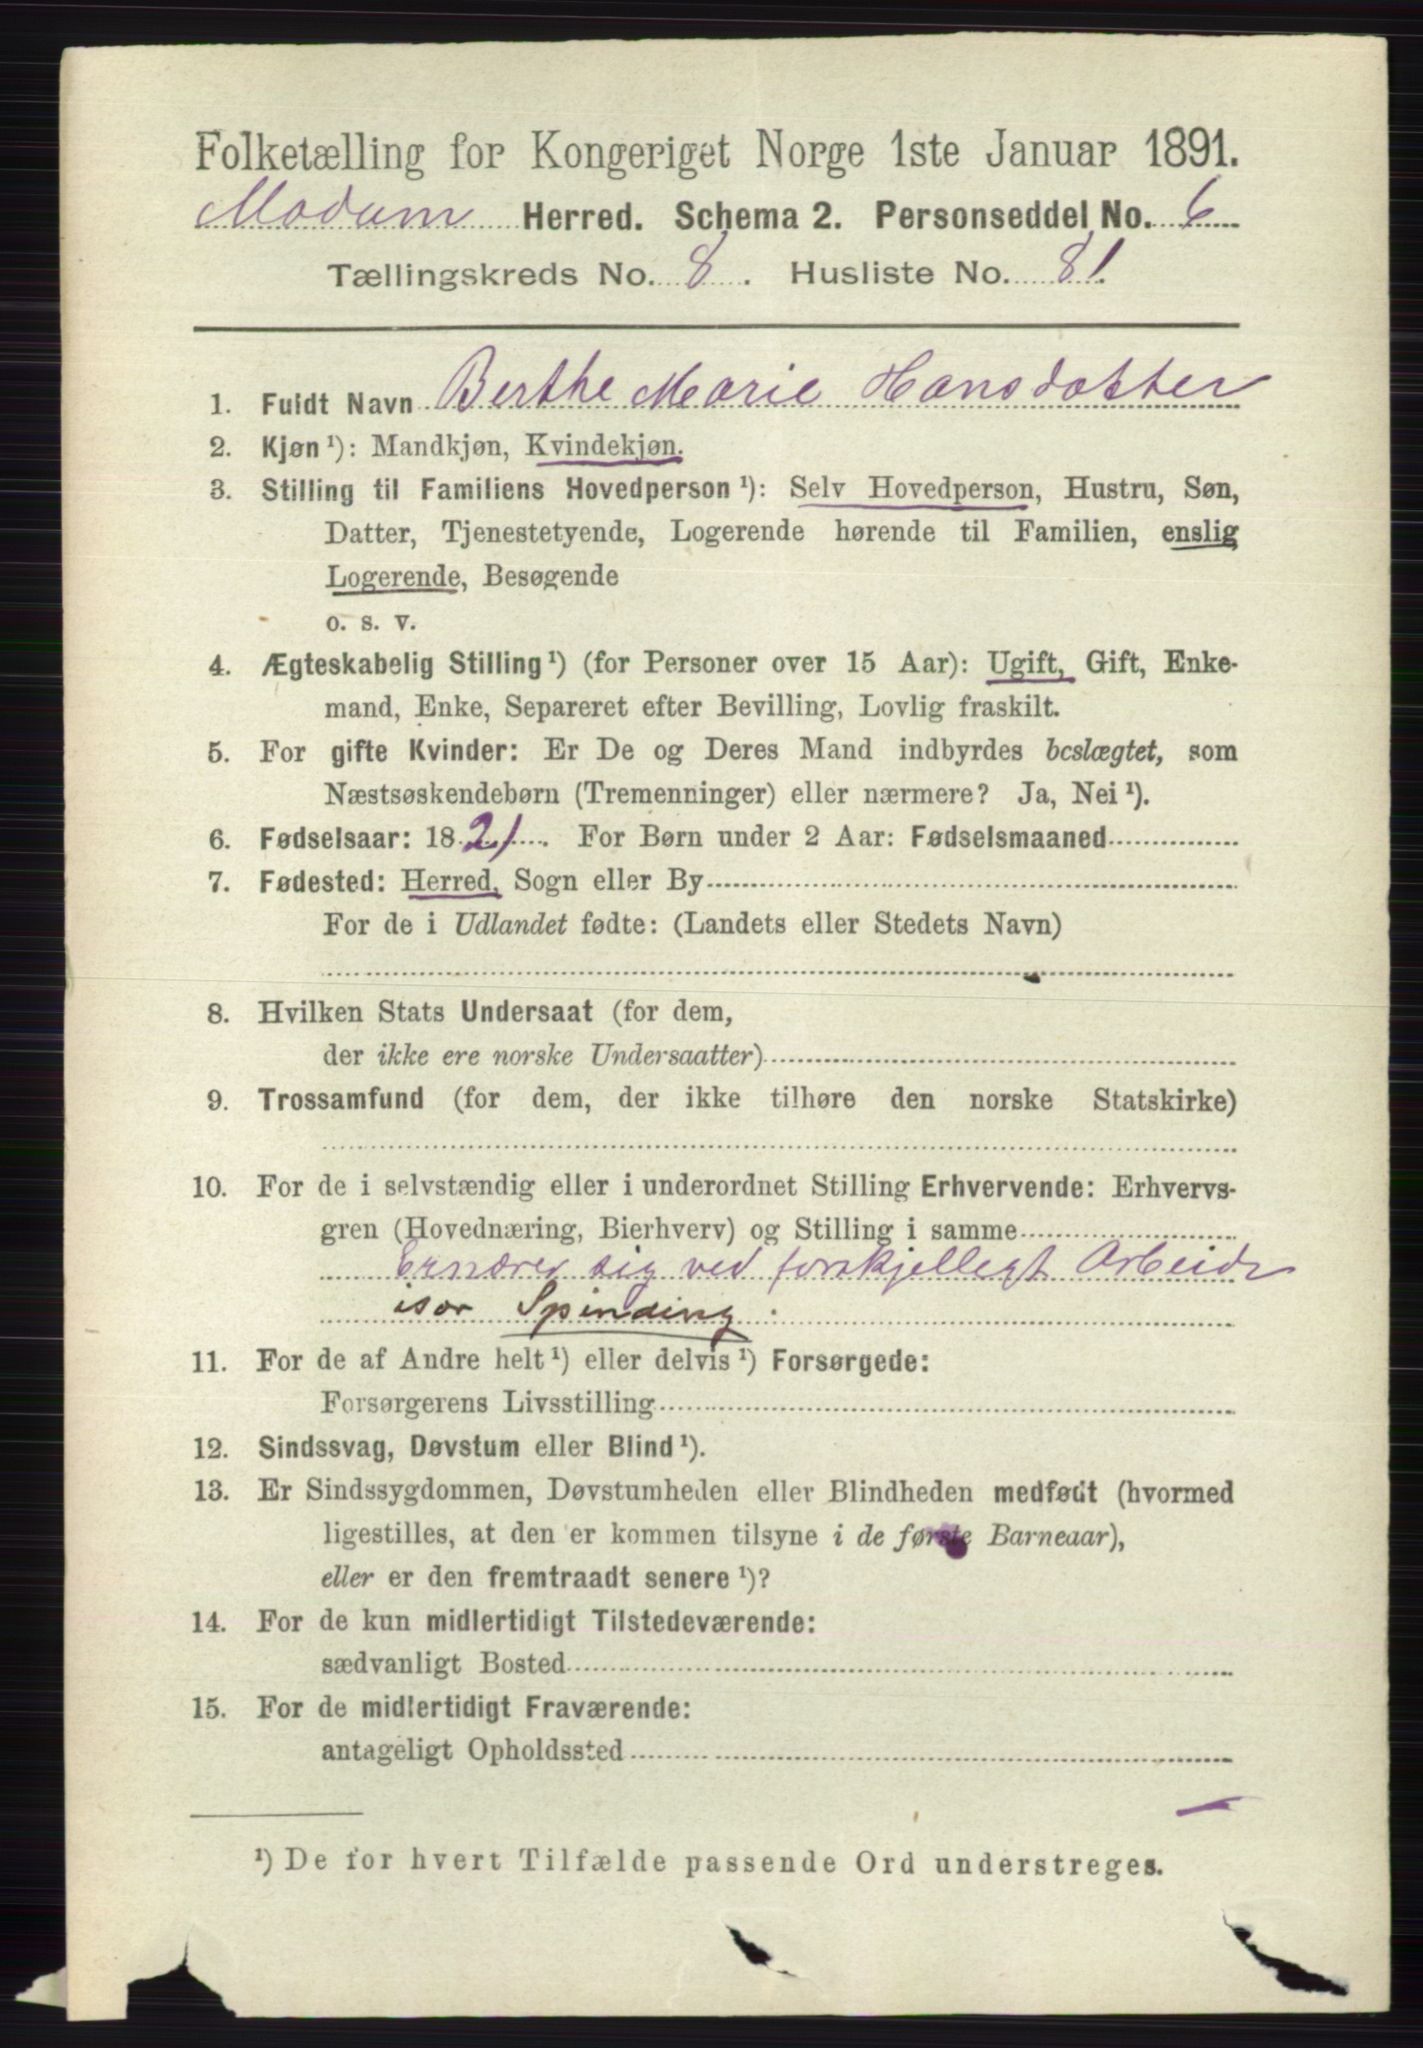 Folketælling for Kongeriget Norge 1ste Januar 1891.
Modum Herred. Schema 2. Personseddel No. 6
Tællingskreds No. 8. Husliste No. 81.
1. Fuldt Navn Berthe Marie Hansdatter
2. Kjøn¹): Mandkjøn, Kvindekjøn.
3. Stilling til Familiens Hovedperson¹): Selv Hovedperson, Hustru, Søn,
Datter, Tjenestetyende, Logerende hørende til Familien, enslig
Logerende, Besøgende
o. s. v.
4. Ægteskabelig Stilling¹) (for Personer over 15 Aar): Ugift, Gift, Enke-
mand, Enke, Separeret efter Bevilling, Lovlig fraskilt.
5. For gifte Kvinder: Er De og Deres Mand indbyrdes beslægtet, som
Næstsøskendebørn (Tremenninger) eller nærmere? Ja, Nei¹).
6. Fødselsaar: 1821. For Børn under 2 Aar: Fødselsmaaned
7. Fødested: Herred, Sogn eller By
For de i Udlandet fødte: (Landets eller Stedets Navn)
8. Hvilken Stats Undersaat (for dem,
der ikke ere norske Undersaatter)
9. Trossamfund (for dem, der ikke tilhøre den norske Statskirke)
10. For de i selvstændig eller i underordnet Stilling Erhvervende: Erhvervs-
gren (Hovednæring, Bierhverv) og Stilling i samme
Ernærer sig ved forskjelligt Arbeide
især Spinding.
11. For de af Andre helt¹) eller delvis¹) Forsørgede:
Forsørgerens Livsstilling
12. Sindssvag, Døvstum eller Blind¹).
13. Er Sindssygdommen, Døvstumheden eller Blindheden medfødt (hvormed
ligestilles, at den er kommen tilsyne i de første Barneaar),
eller er den fremtraadt senere¹)?
14. For de kun midlertidigt Tilstedeværende:
sædvanligt Bosted
15. For de midlertidigt Fraværende:
antageligt Opholdssted
¹) De for hvert Tilfælde passende Ord understreges.